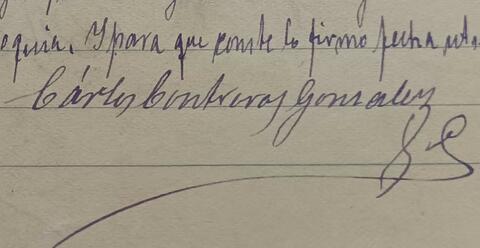 equia. Y para que conste lo firmo fecha ut s.
Cárlos Contreras Gonzalez